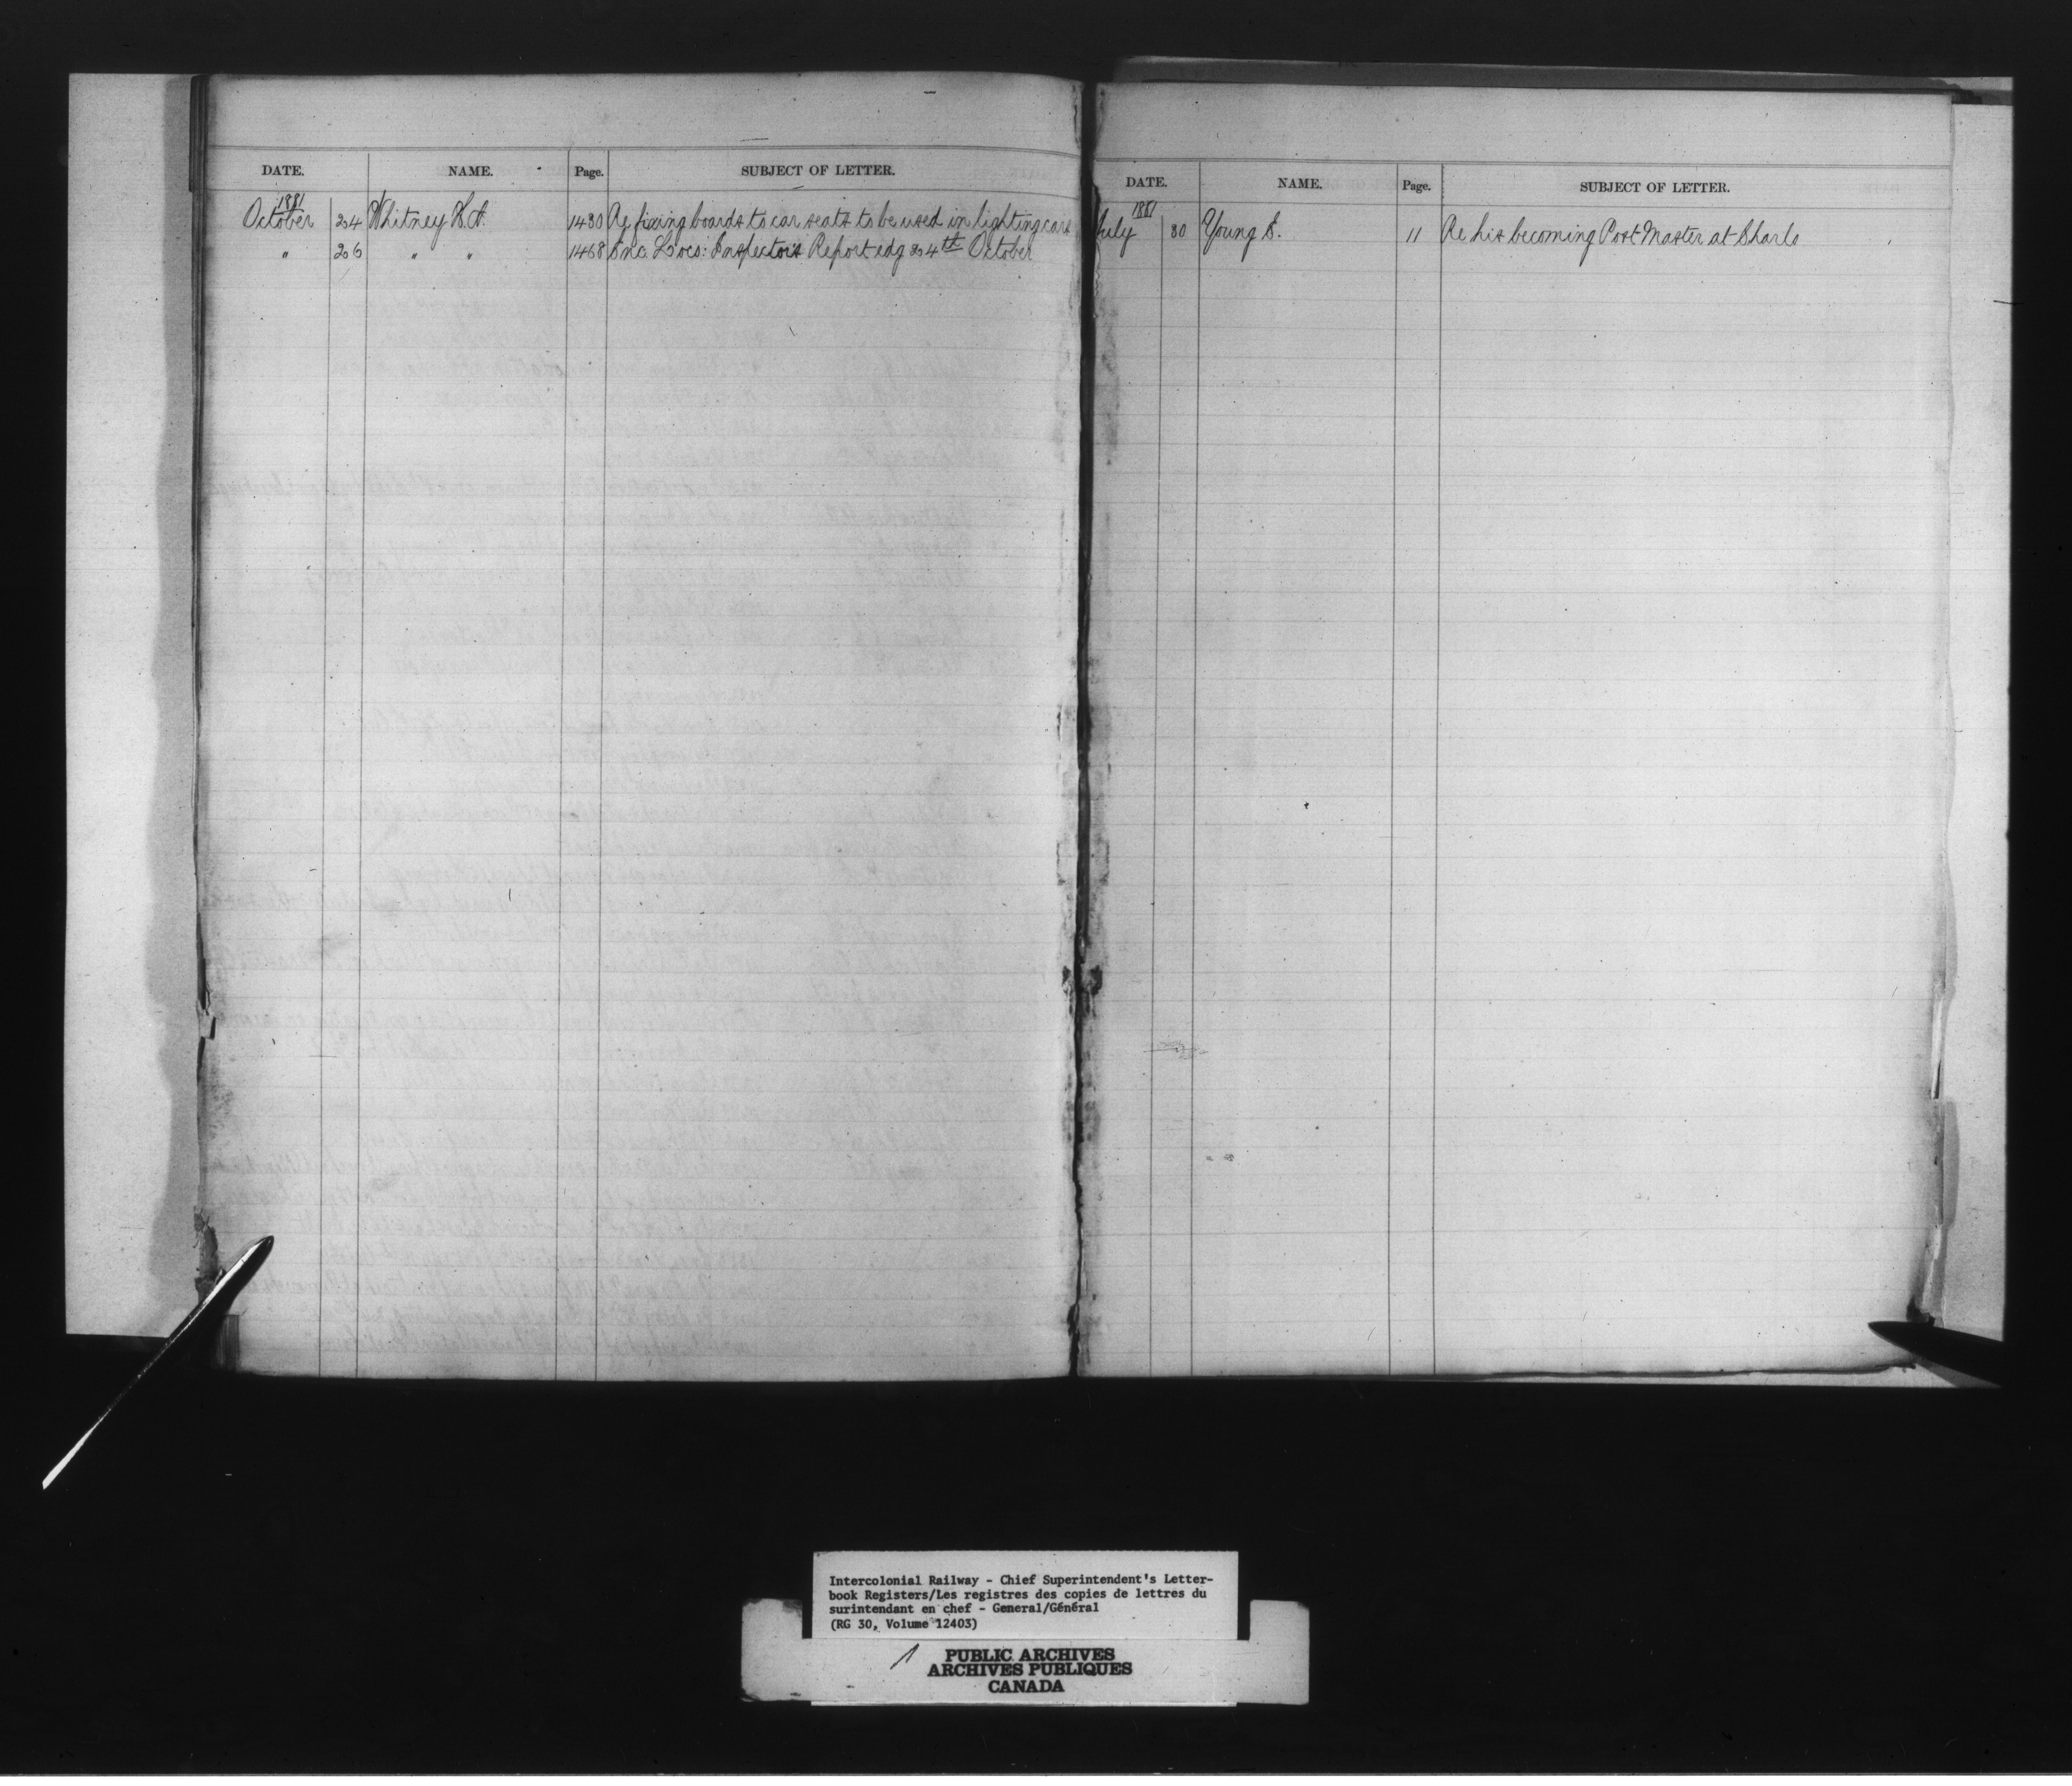 DATE. NAME. Page. SUBJECT OF LETTER.
1881
October 24 Whitney H.A. 1430 Re fixing boards to car seats to be used in lighting cars
" 26 " " 1468 Enc. Loco: Inspectors Report edg 24th October
DATE. NAME. Page. SUBJECT OF LETTER.
1881
July 30 Young S. 11 Re his becoming Post Master at Charlo
Intercolonial Railway - Chief Superintendent's Letter-
book Registers/Les registres des copies de lettres du
surintendant en chef - General/Général
(RG 30, Volume 12403)
1 PUBLIC ARCHIVES
ARCHIVES PUBLIQUES
CANADA